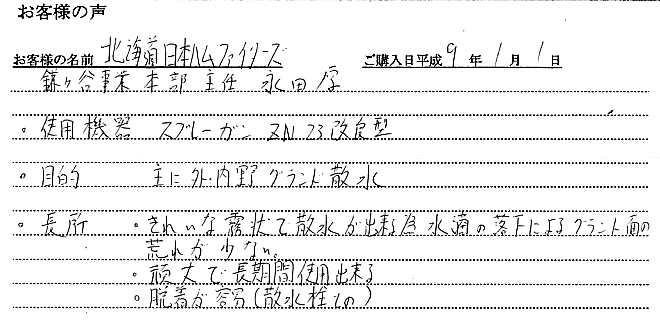 お客様の声
お客様の名前 北海道日本ハムファイターズ ご購入日平成 9 年 1 月 1 日
鎌ヶ谷事業本部主任 永田厚
。使用機器 スプレーガン ZN23改良型
。目的 主に外・内野グランド散水
。長所 ・きれいな霧状で散水が出来る為水滴の落下によるグランド面の
荒れが少ない。
・頑丈で長期間使用出来る
。脱着が容易(散水栓との)